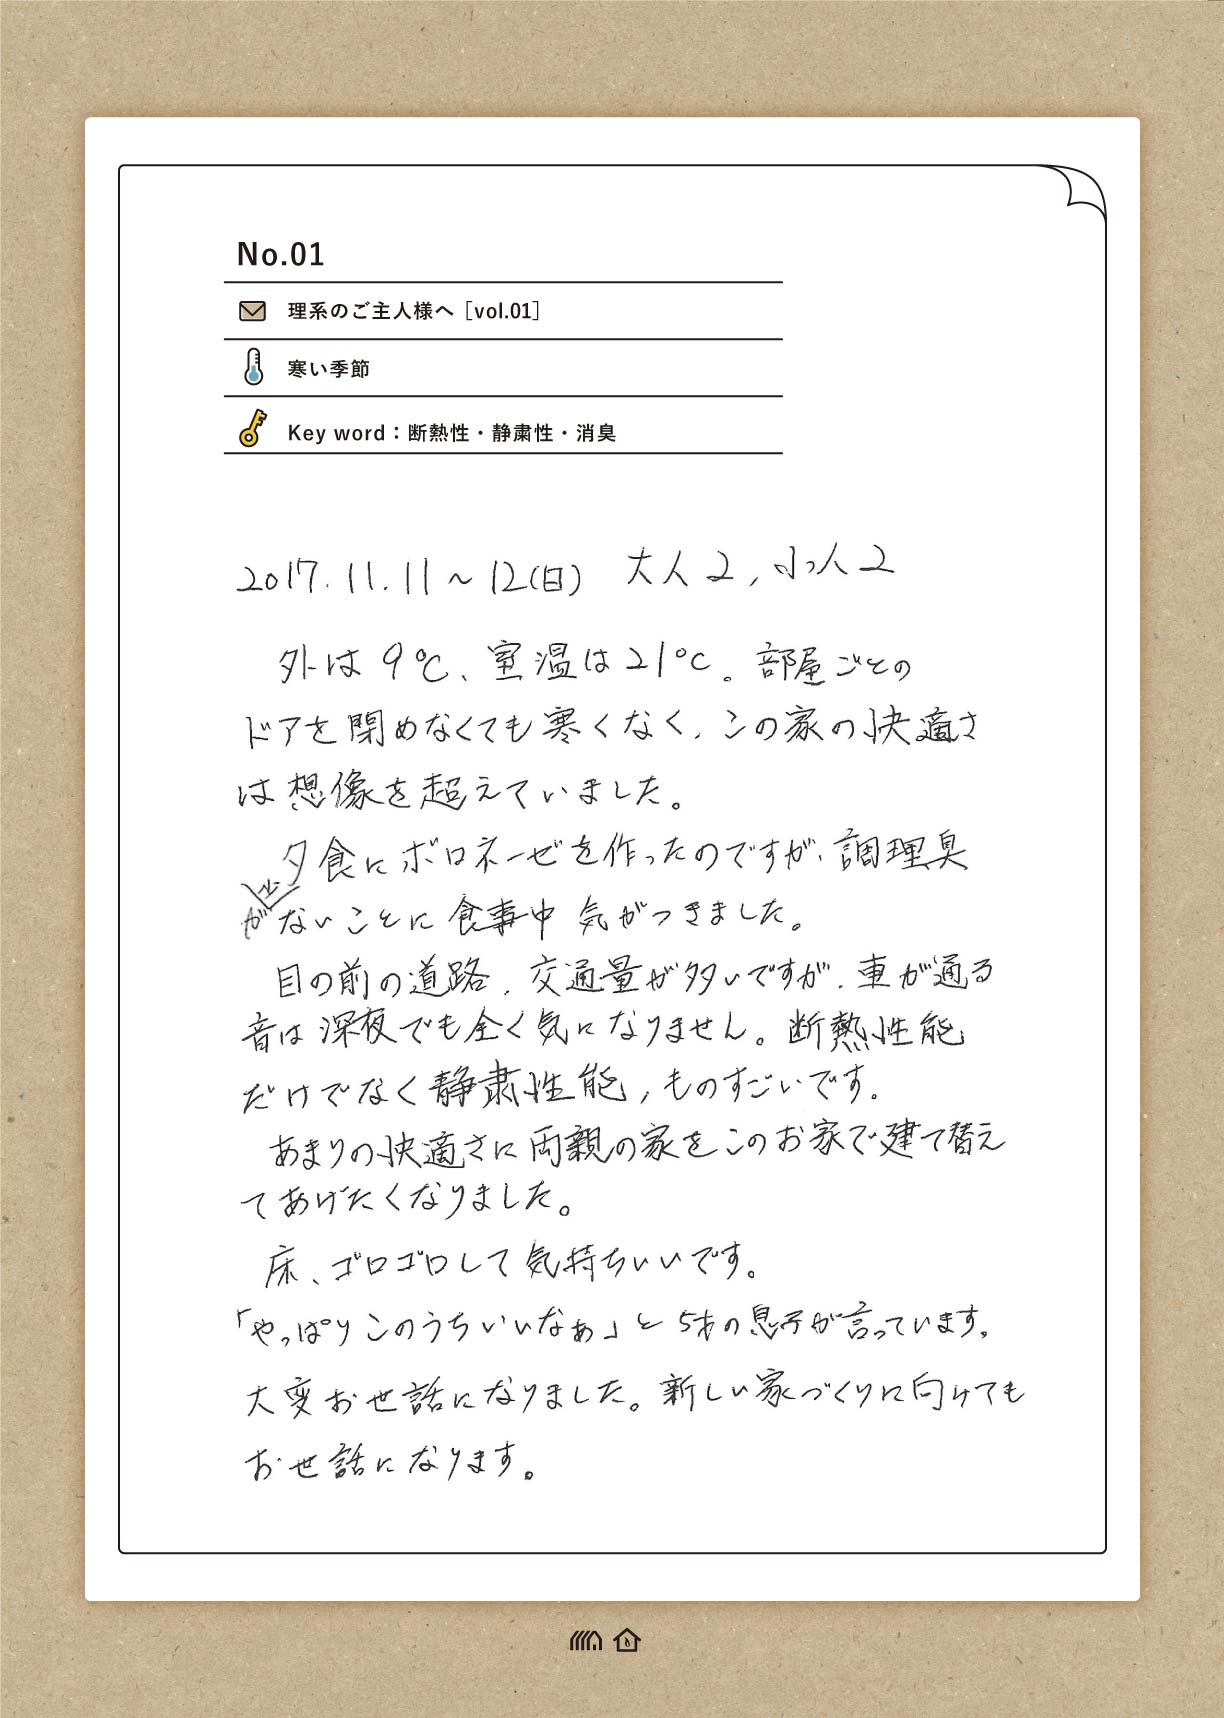 No.01
理系のご主人様へ［vol.01］
寒い季節
Key word：断熱性・静粛性・消臭
2017.11.11～12(日) 大人2, 小人2
外は9℃、室温は21℃。部屋ごとの
ドアを閉めなくても寒くなく、この家の快適さ
は想像を超えていました。
夕食にボロネーゼを作ったのですが、調理臭
がないことに食事中気がつきました。
目の前の道路、交通量が多いですが、車が通る
音は深夜でも全く気になりません。断熱性能
だけでなく静粛性能，ものすごいです。
あまりの快適さに両親の家をこのお家で建て替え
てあげたくなりました。
床、ゴロゴロして気持ちいいです。
「やっぱりこのうちいいなぁ」と5才の息子が言っています。
大変お世話になりました。新しい家づくりに向けても
お世話になります。